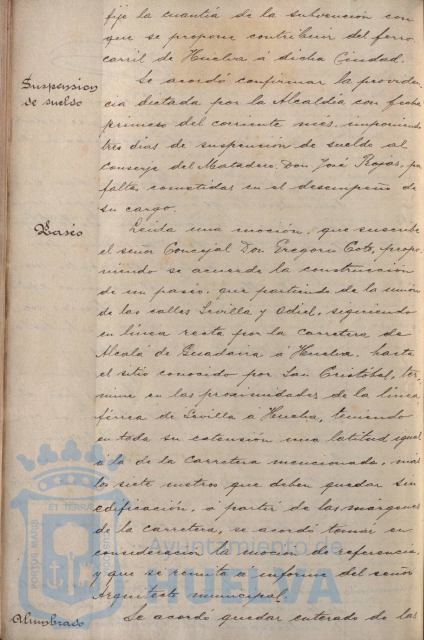 fije la cuantía de la subvención con
que se propone contribuir del ferro
carril de Huelva á dicha Ciudad.
Suspension
de sueldo
Se acordó confirmar la providen
cia dictada por la Alcaldía con fecha
primero del corriente mes, imponiendo
tres dias de suspension de sueldo al
Conserje del Matadero Don José Rojas, por
faltas cometidas en el desempeño de
su cargo.
Paseo
Leida una mocion, que suscribe
el señor Concejal Don Gregorio Coto, propo
niendo se acuerde la construccion
de un paseo, que partiendo de la union
de las calles Sevilla y Odiel, siguiendo
en linea recta por la carretera de
Alcalá de Guadaira á Huelva, hasta
el sitio conocido por San Cristóbal, ter-
mine en las proximidades de la linea
férrea de Sevilla á Huelva, teniendo
en toda su extension una latitud igual
á la de la Carretera mencionada, más
los siete metros que deben quedar sin
edificación, á partir de las márgenes
de la Carretera, se acordó tomar en
consideracion la mocion de referencia,
y que se remita á informe del señor
Arquitecto municipal.
Alumbrado
Se acordó quedar enterado de las
PORTUS MARIS
ET TERRAE
Ayuntamiento de
HUELVA